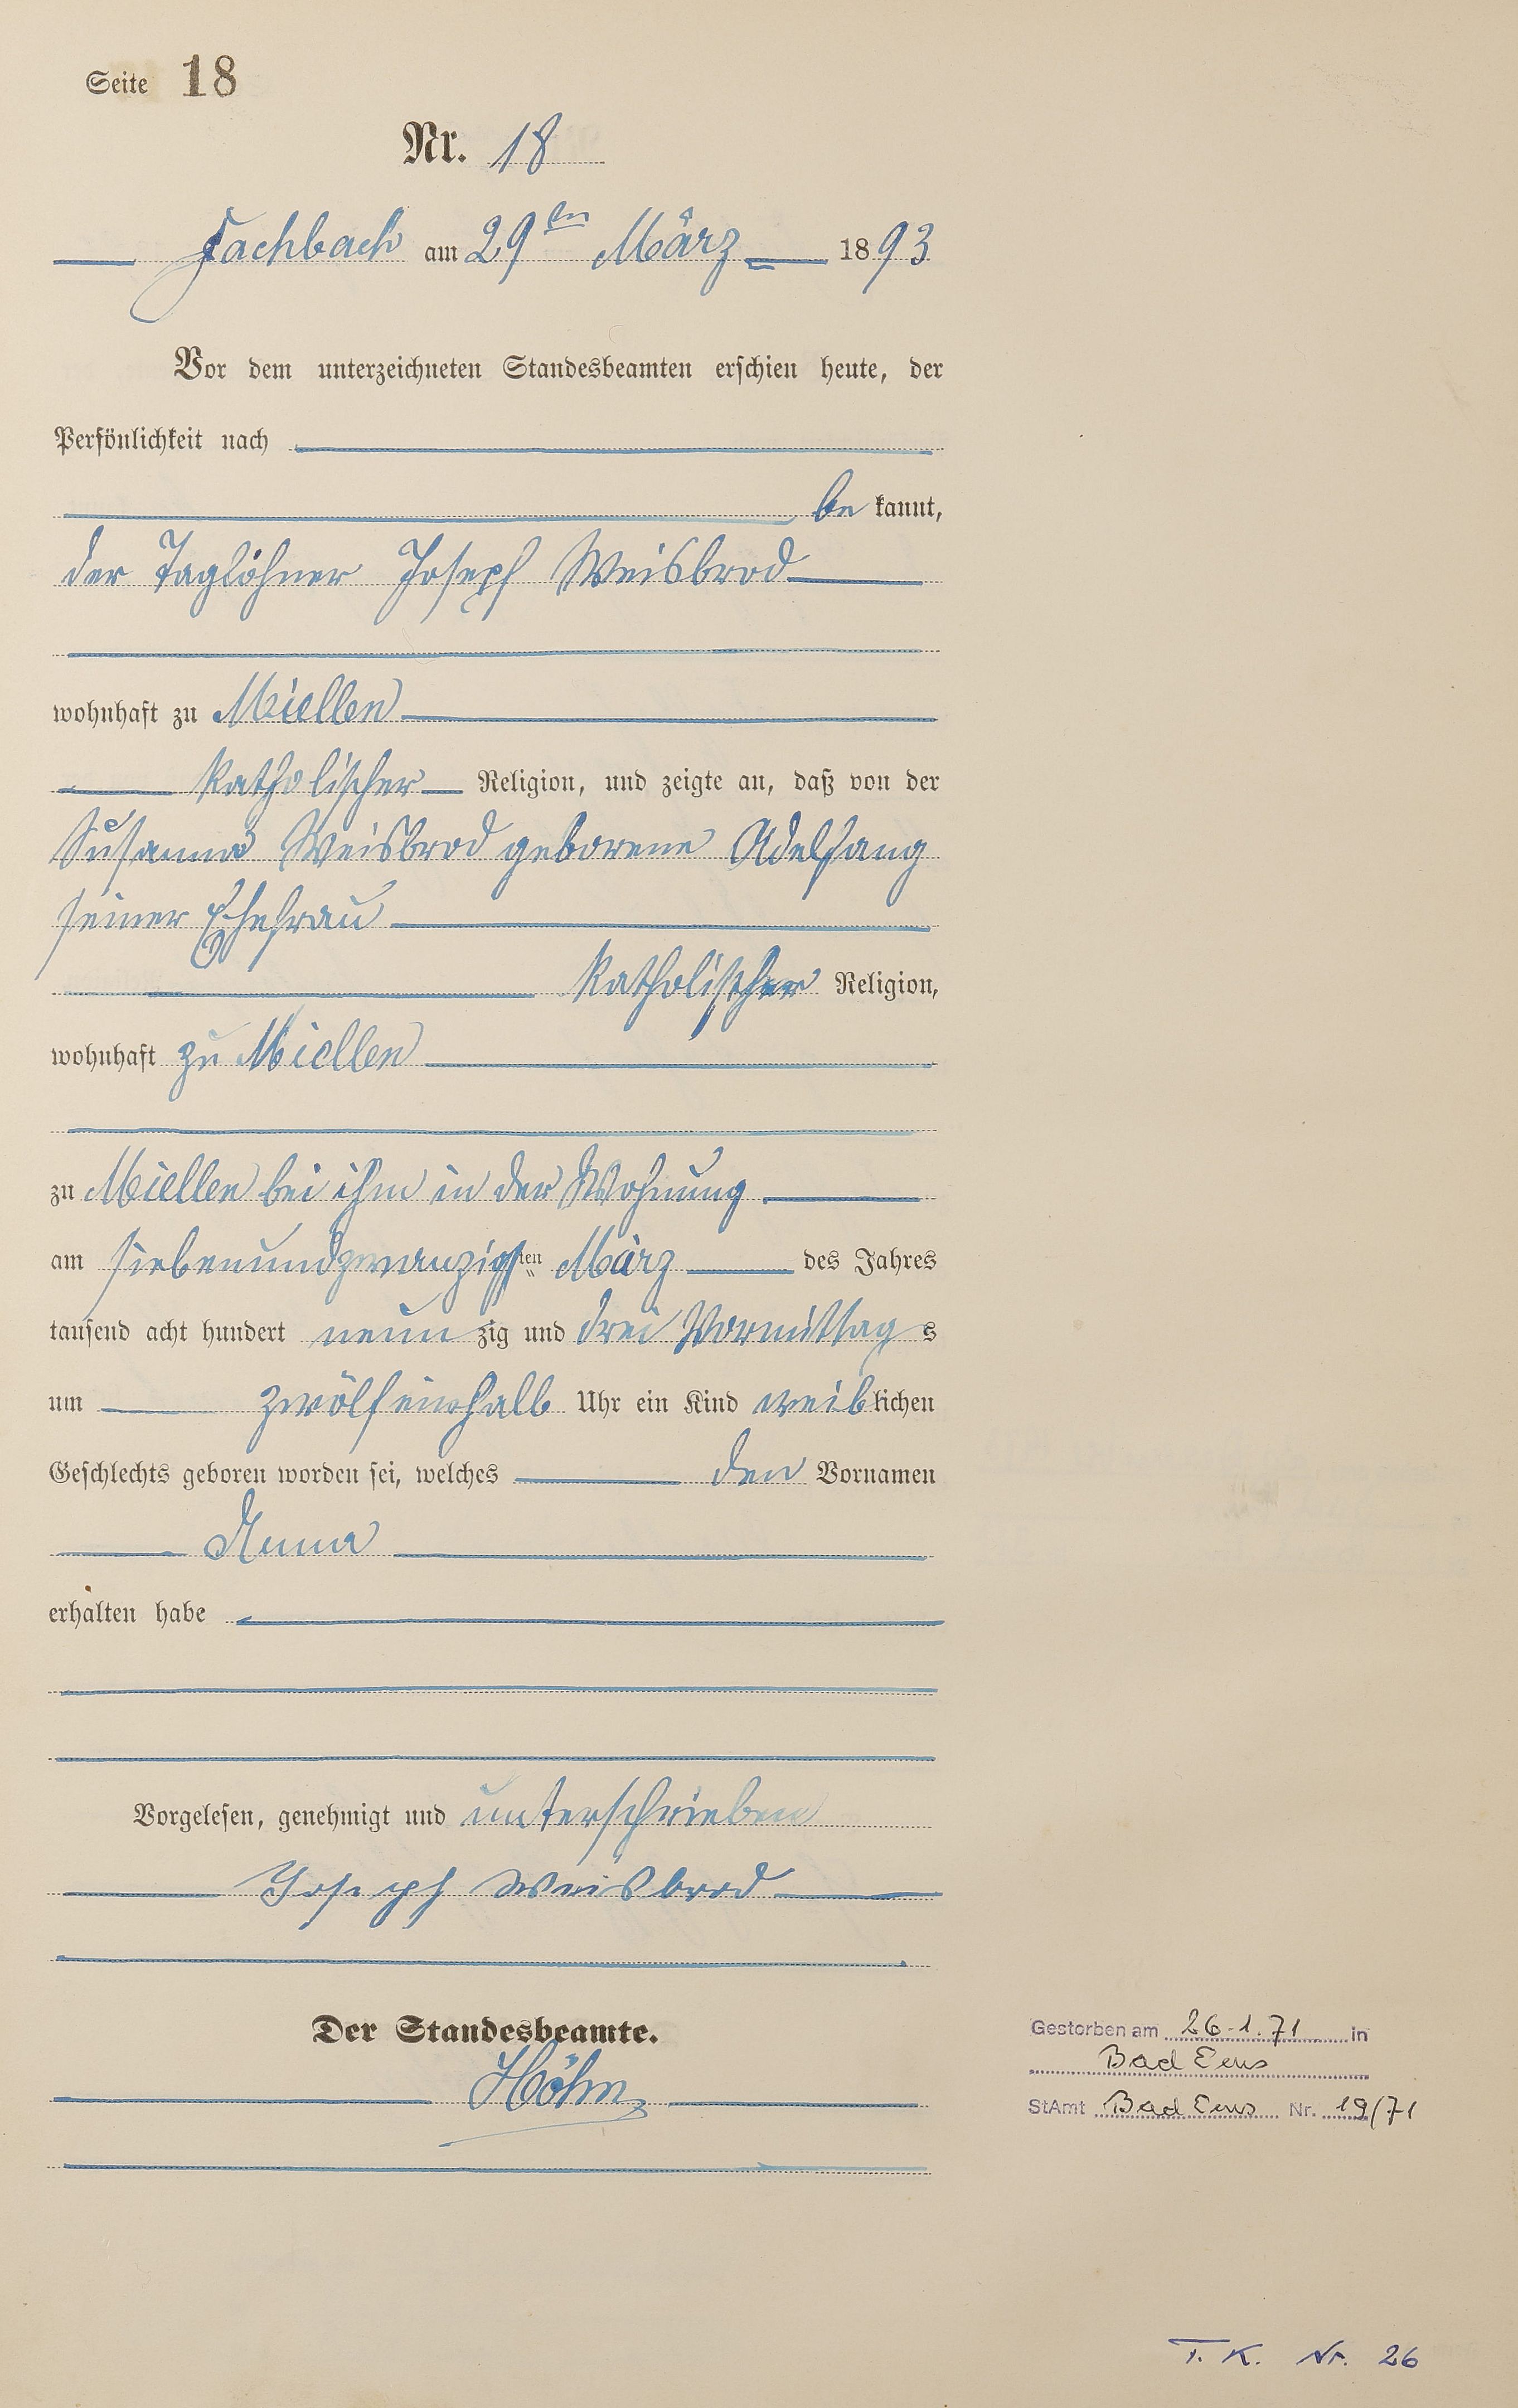 Seite 18
Nr. 18
Fachbach am 29ten März 1893
Vor dem unterzeichneten Standesbeamten erschien heute, der
Persönlichkeit nach
be kannt,
der Taglöhner Joseph Weisbrod
wohnhaft zu Miellen
katholischer Religion, und zeigte an, daß von der
Susanna Weisbrod geborene Adelfang
seiner Ehefrau
katholischer Religion,
wohnhaft zu Miellen
zu Miellen bei ihm in der Wohnung
am siebenundzwanzigsten März des Jahres
tausend acht hundert neun zig und drei Vormittag s
um zwölfeinhalb Uhr ein Kind weiblichen
Geschlechts geboren worden sei, welches den Vornamen
Anna
erhalten habe
Vorgelesen, genehmigt und unterschrieben
Joseph Weisbrod
Der Standesbeamte.
Höhn
Gestorben am 26.1.71 in
Bad Ems
StAmt Bad Ems Nr. 19/71
T. K. Nr. 26